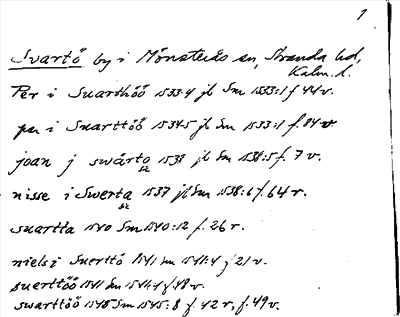 1
Svartö by i Mönsterås sn, Stranda hd,
Kalm. l.
Per i Suarthöö 1533:4 jb Sm 1533:1 f 44 v.
per i Suarttöö 1534:5 jb Sm 1533:1 f. 84 v.
joan j swärto 1538 jb Sm 1538:5 f. 7 v.
nisse i Swerta 1537 jb Sm 1538:6 f. 64 r.
suartta 1540 Sm 1540:12 f. 26 r.
niels i Suerttö 1541 Sm 1541:4 f 21 v.
suerttöö 1541 Sm 1541:4 f 48 v.
swarttöö 1545 Sm 1545:8 f 42 r, f. 49 v.